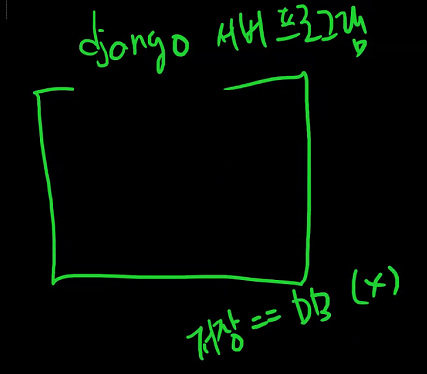 django 서버 프로그램
저장 == DB (x)